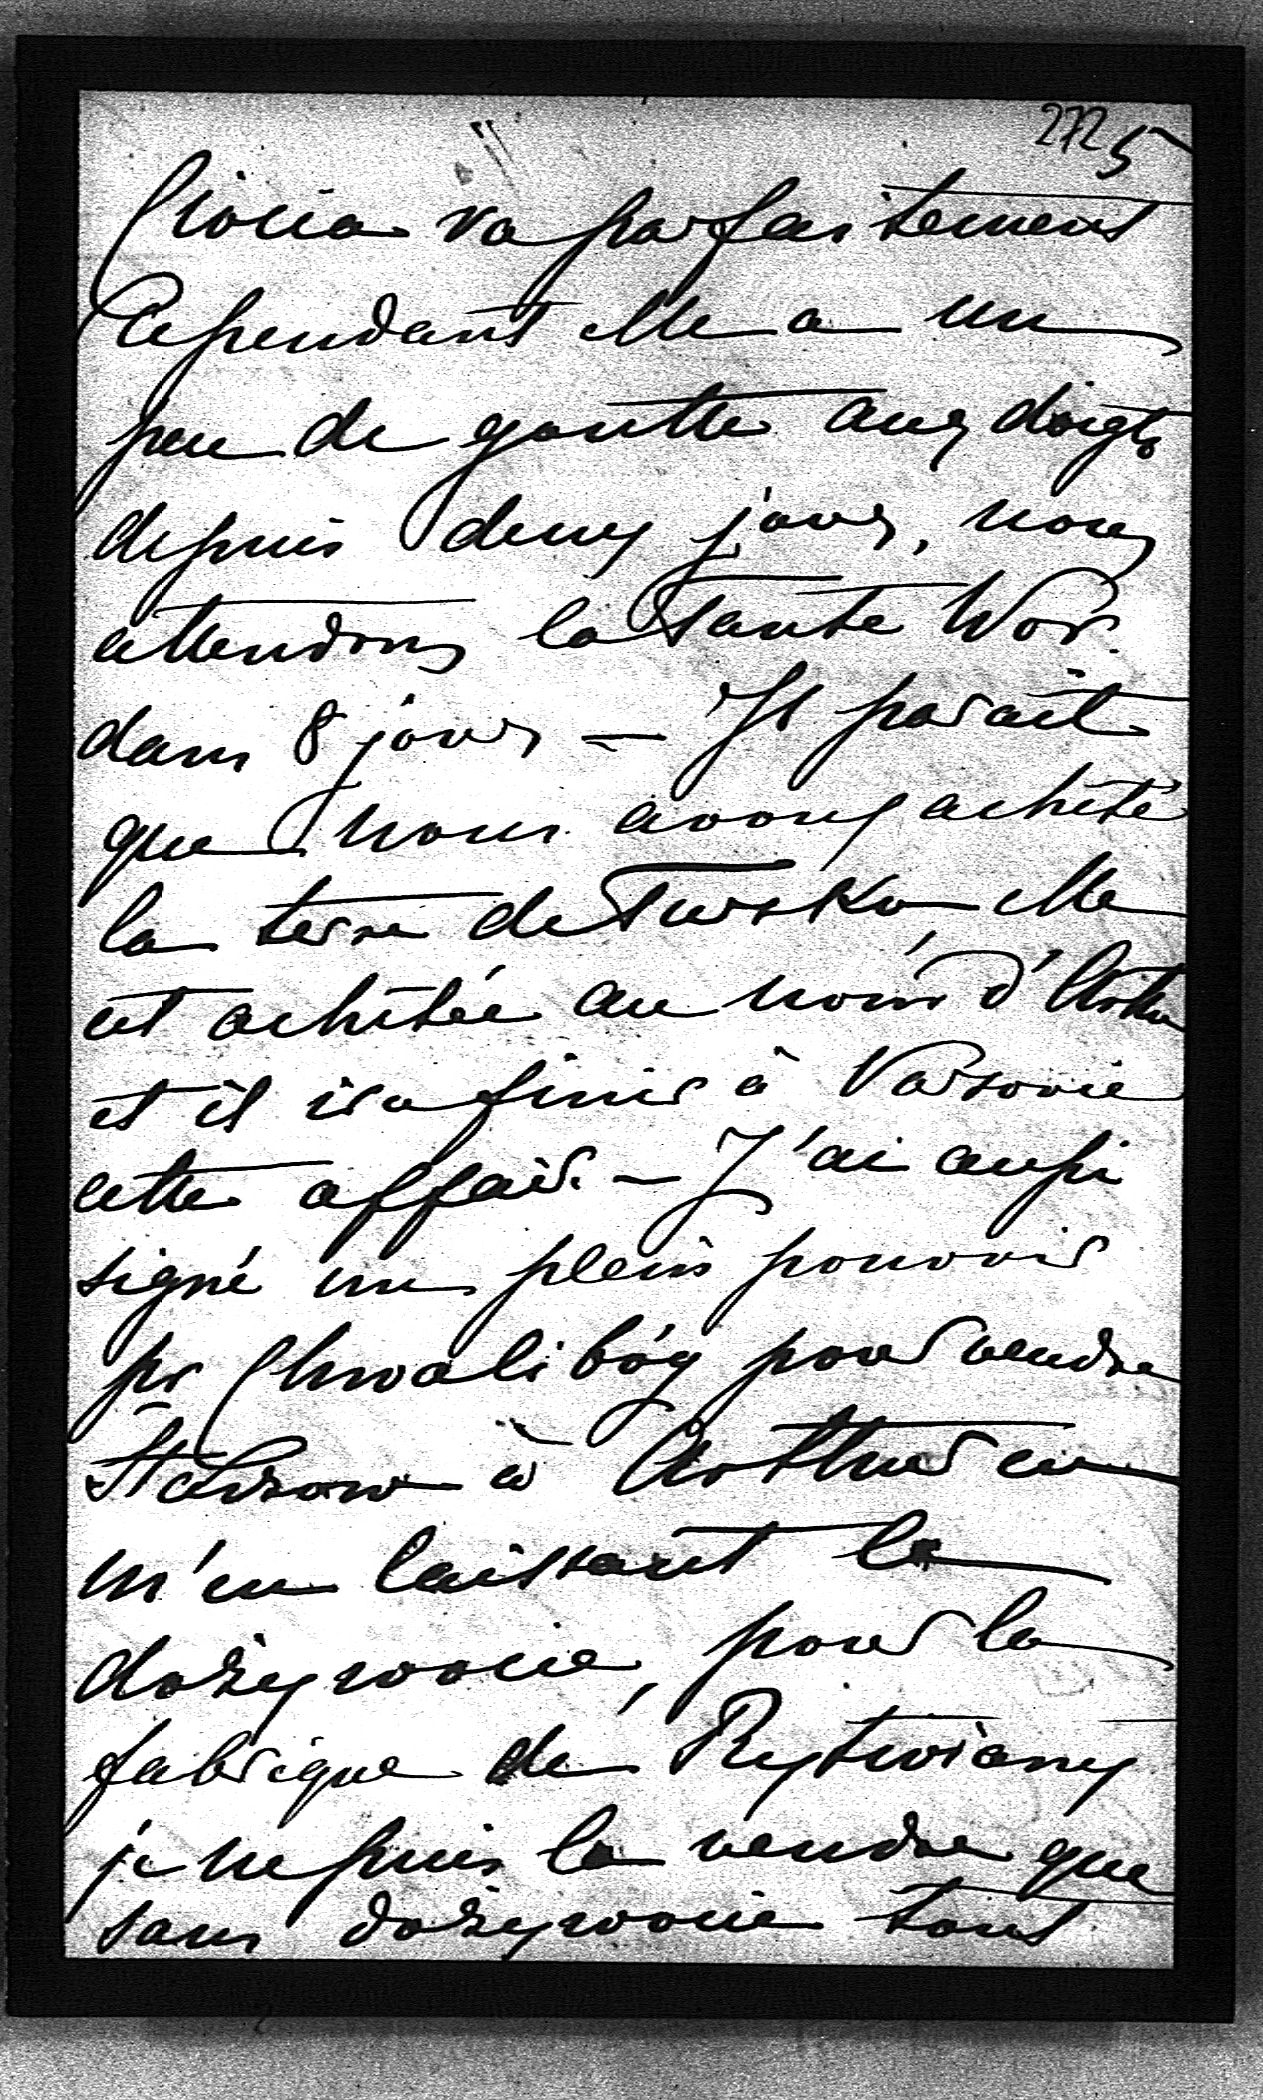 272 5
Ciocia va parfaitement
Cependant elle a un
peu de goutte aux doigts
depuis deux jours, nous
attendons la Tante Wor.
dans 8 jours — Il parait
que nous avons acheté
la terre de Tursko elle
est achetée au nom d'Arthur
et il ira finir à Varsovie
cette affair. — J'ai aussi
signé un plein pouvoir
pr Chwalibóg pour vendre
Staszow à Arthur en
m'en laissant la
dożywocie, pour la
fabrique de Rytwiany
je ne puis la vendre que
sans dożywocie tout